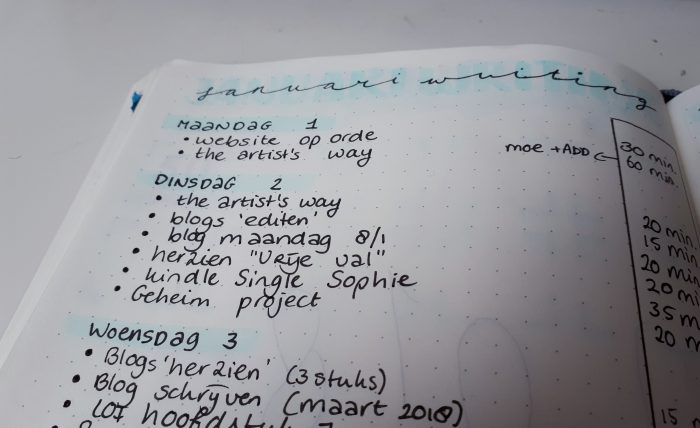 januari writing
MAANDAG 1
• website op orde
• the artist's way
moe + ADD
30 min.
60 min.
DINSDAG 2
• the artist's way
• blogs 'editen'
• blog maandag 8/1
• herzien "Vrije val"
• kindle Single Sophie
• Geheim project
20 min
15 min.
20 min
20 min
35 m
20 m
WOENSDAG 3
• Blogs 'herzien' (3 stuks)
• Blog schrijven (maart 2018)
• LOI hoofdstuk
15